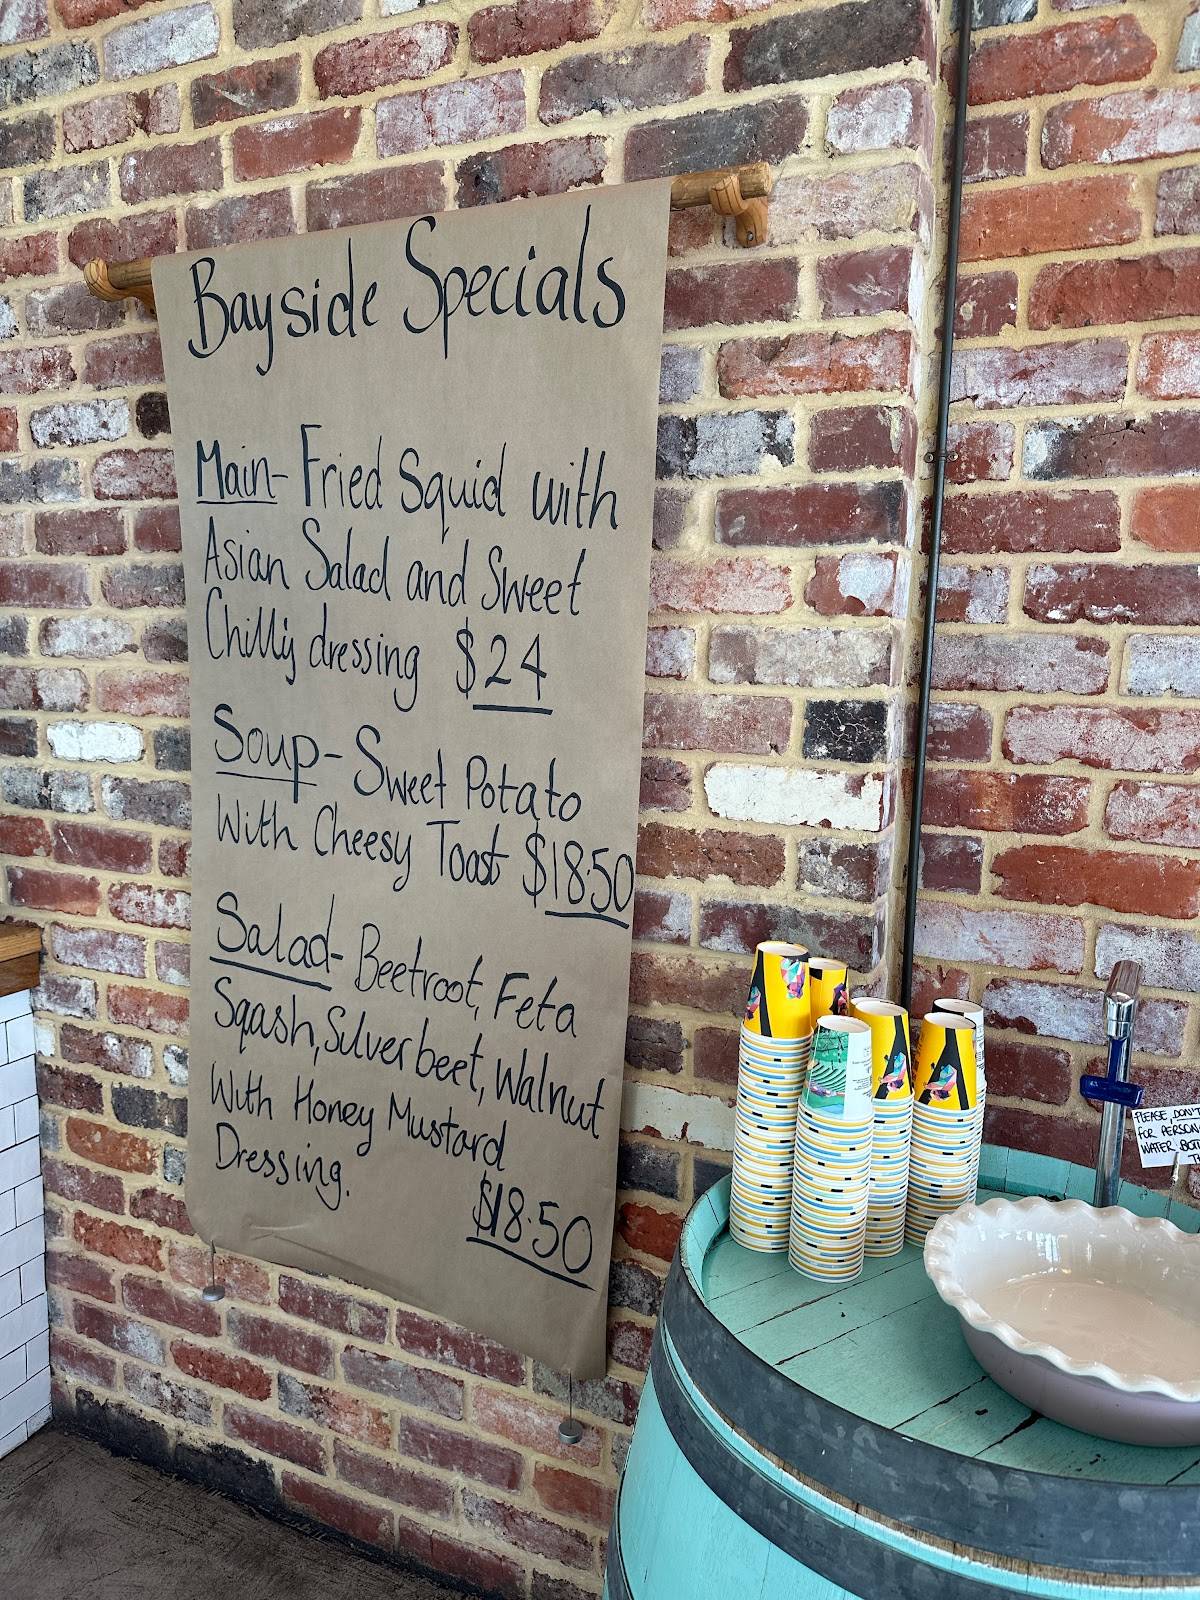 Bayside Specials
Main- Fried Squid with
Asian Salad and Sweet
Chilly dressing $24
Soup- Sweet Potato
With Cheesy Toast $18.50
Salad- Beetroot, Feta
Sqash, Silverbeet, Walnut
With Honey Mustard
Dressing.
$18.50
PLEASE DON'T
FOR PERSON
WATER BOT